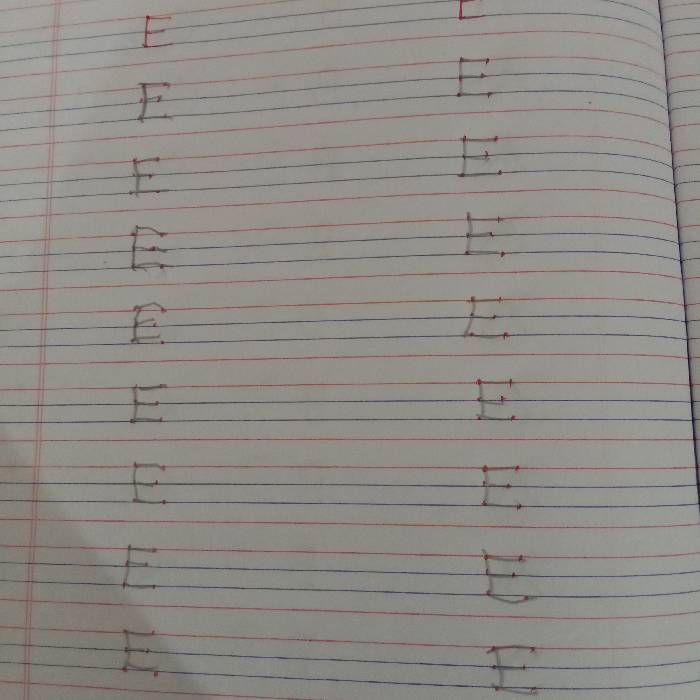 E E
E E
E E
E E
E E
E E
E E
E E
E E